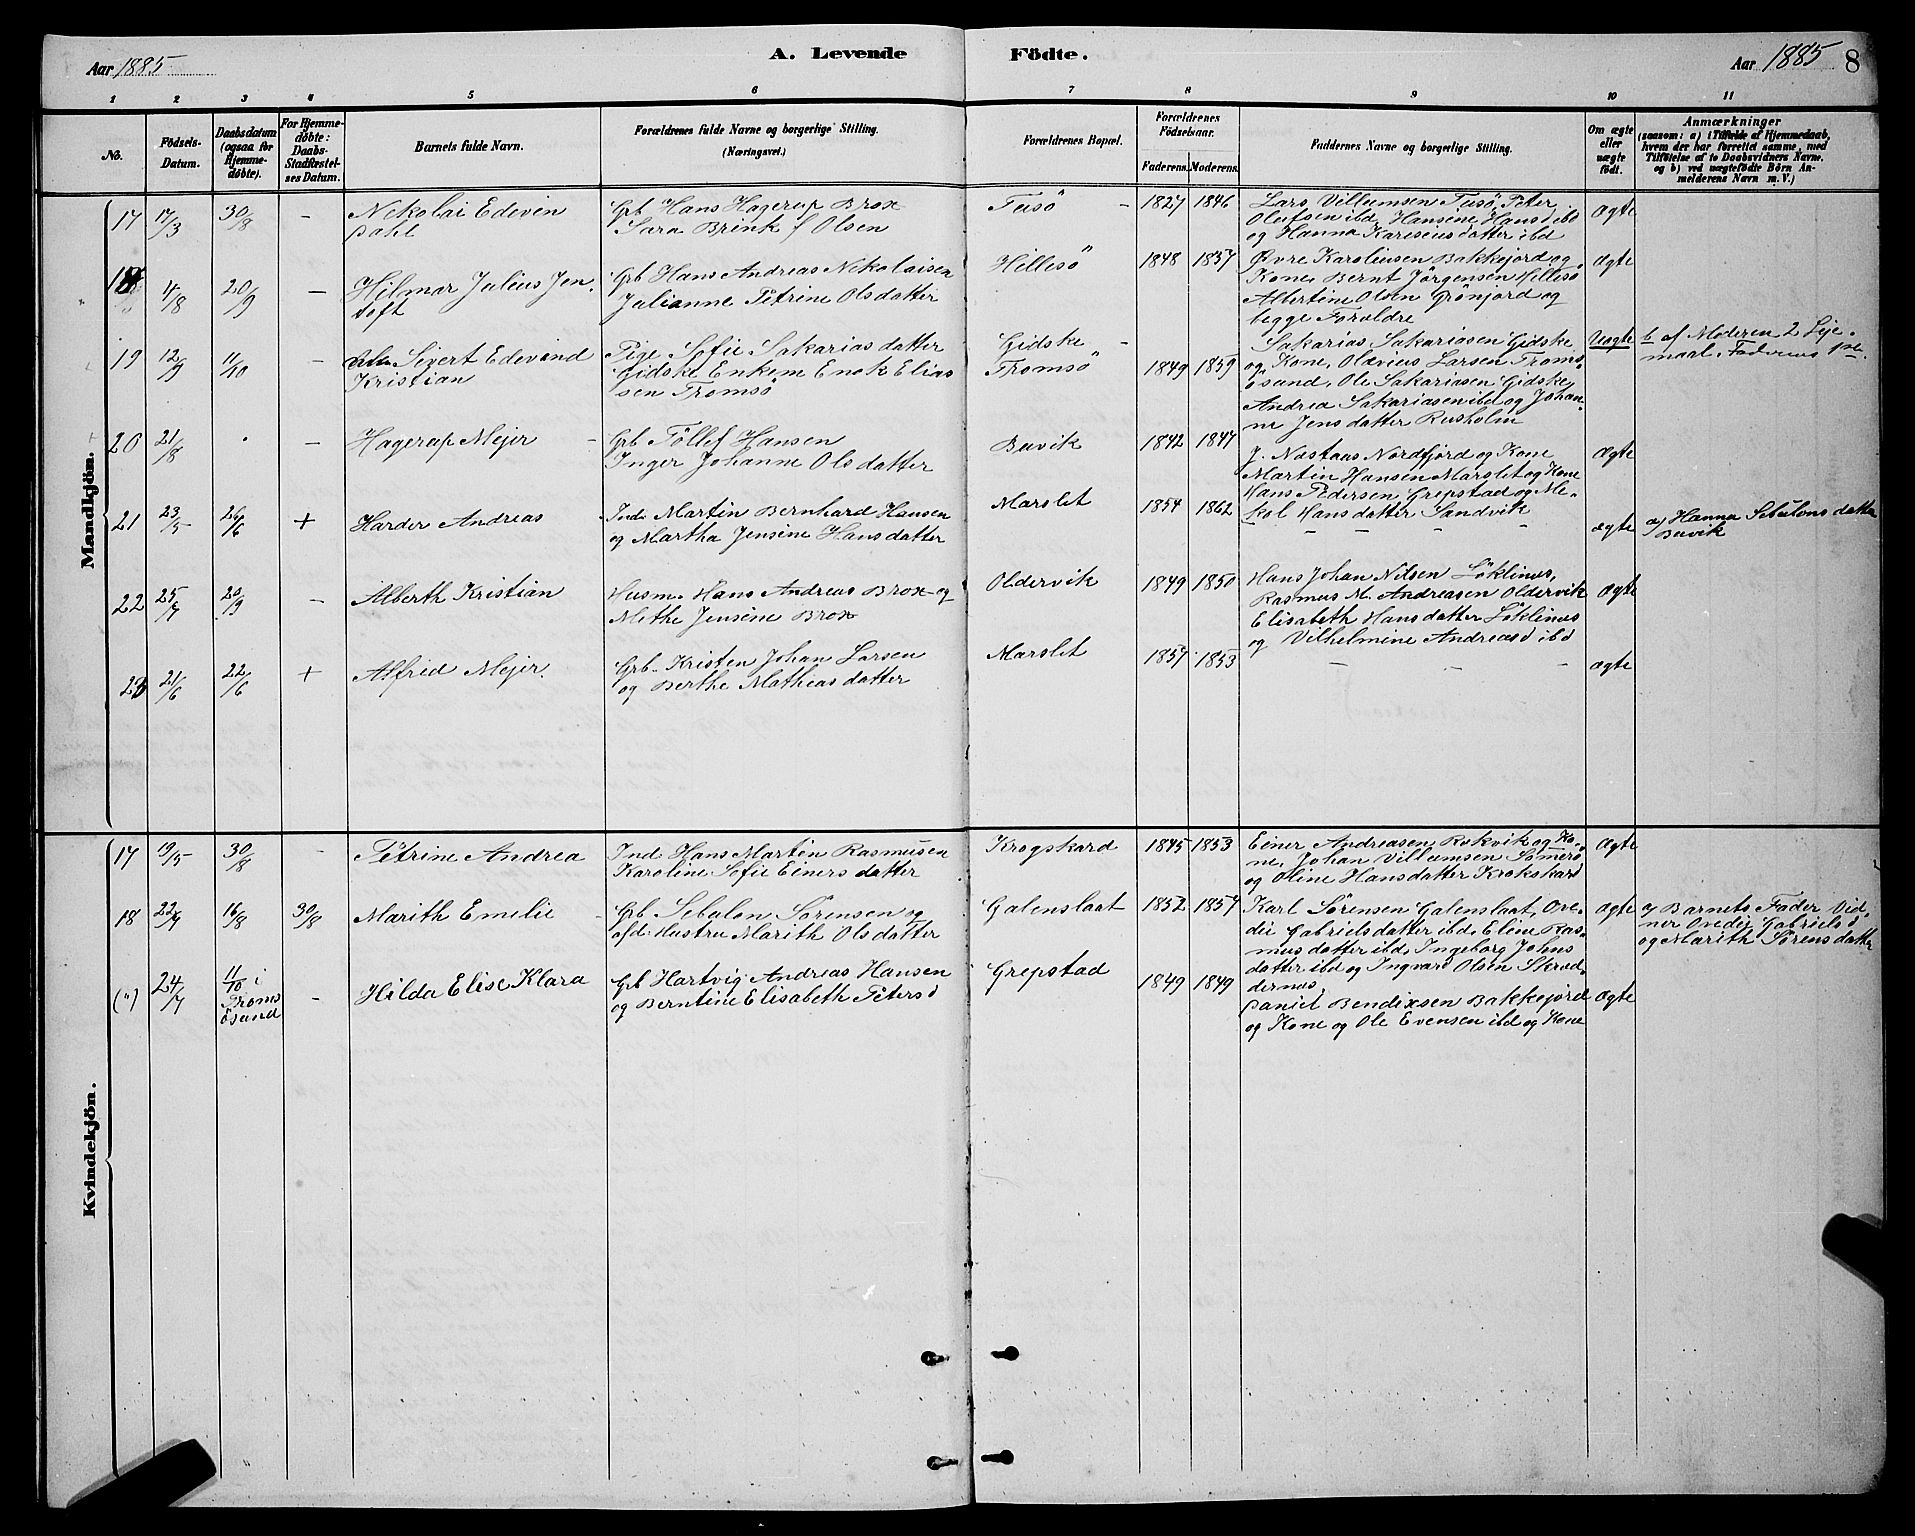 Aar 1885
A. Levende
Födte.
Aar 1885
8
1 2 3 4 5 6 7 8 9 10 11
No.
Födsels-
Datum.
Daabsdatum
(ogsaa for
Hjemme-
døbte).
For Hjemme-
døbte:
Daabs-
Stadfæstel-
ses Datum.
Barnets fulde Navn.
Forældrenes fulde Navne og borgerlige Stilling.
(Næringsvei.)
Forældrenes Bopæl.
Forældrenes
Födselsaar.
Faderens. Moderens.
Faddernes Navne og borgerlige Stilling.
Om ægte
eller
uægte
født.
Anmærkninger
(saasom: a) i Tilfælde af Hjemmedaab,
hvem der har forrettet samme, med
Tilföielse af to Daabsvidners Navne,
og b) ved uægtefødte Børn An-
melderens Navn m. V.)
Mandkjön.
17 17/3 30/8 – Nikolai Edevin
Dahl
Grb Hans Hagerup Brox
Sara Brink f Olsen
Tusö – 1827 1846
Lars Villumsen Tusö, Peter
Olufsen ibd, Hansine Hansd ibd
og Hanna Kariseius datter ibd
Ægte
18 4/8 20/9 – Hilmar Julius Jen
toft
Grb Hans Andreas Nikolaisen
Julianne Petrine Olsdatter
Hillesö 1848 1857
Øvre Karolinsen Bakkejord og
Kone, Bernt Jörgensen Hillesö
Albertine Olsen Grönjord og
begge Foreldre
Ægte
19 12/9 11/10 – Sivert Edevind
Kristian
Pige Sofie Sakarias datter
Gidske Enkem Enok Elias
sen Tromsö
Gidske –
Tromsö 1849 1859
Sakarias Sakariasen Gidske
og Kone, Olavius Larsen Troms
ösund, Ole Sakariasen Gidske,
Andrea Sakariasen ibd og Johan-
ne Jensdatter Rusholm
Uægte
b af Moderen 2 Leje-
maal, Faderens 1ste
20 21/8 . – Hagerup Mejer –
Grb Töllef Hansen
Inger Johanne Olsdatter
Buvik 1842 1847
J. Næstaas Nordfjord og Kone
Martin Hansen Marslet og Kone
Hans Pedersen Grepstad og Ni-
kol Hansdatter Sandvik
Ægte
21 23/5 26/6 + Harder Andreas
Ind. Martin Bernhard Hansen
og Martha Jensine Hansdatter
Marslet 1854 1862
– – – –
ægte
a/ Hanna Sebulons datter
Buvik
22 25/7 20/9 – Alberth Kristian
Husm. Hans Andreas Brox og
Methe Jensine Brox
Oldervik 1849 1850
Hans Johan Nilsen Löklines,
Rasmus M. Andreasen Oldervik
Elisabeth Hansdatter Löklines
og Vilhelmine Andreasd ibd
Ægte
23 21/6 22/6 + Alfrid Mejer.
Grb. Kristen Johan Larsen
og Berthe Mathias datter
Marslet 1857 1853
– – –
Ægte
Kvindekjön.
17 19/5 30/8 – Petrine Andrea
Ind. Hans Martin Rasmusen
Karoline Sofie Einers datter
Krogskard 1845 1853
Einer Andreasen Rekvik og Ko-
ne, Johan Villumsen Sömerö
og Oline Hansdatter Krokskard
Ægte
18 22/7 16/8 30/8 Marith Emelie –
Grb Sebulon Sörensen og
afd. Hustru Marith Olsdatter
Galenslaat 1852 1857
Karl Sörensen Galenslaat, Ove-
die Gabrielsdatter ibd, Eline Ras-
musdatter ibd, Ingeborg Johns
datter ibd og Ingvard Olsen Skrod-
dernes.
Ægte
a/ Barnets Fader Vid-
ner Ovedie Gabrielsd
og Marith Sörens datter
(") 24/7 11/10 i
Troms
ösund
– Hilda Elise Klara
Grb Hartvig Andreas Hansen
og Berntine Elisabeth Petersd
Grepstad 1849 1849
Daniel Bendixsen Bakkejord
og Kone og Ole Evensen ibd og Kone
Ægte